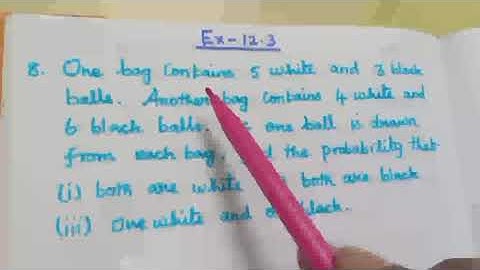 Ex-12.3
8. One bag contains 5 white and 3 black
balls. Another bag contains 4 white and
6 black balls. one ball is drawn
from each bag, the probability that
(i) both are white both are black
(iii) One white and black.